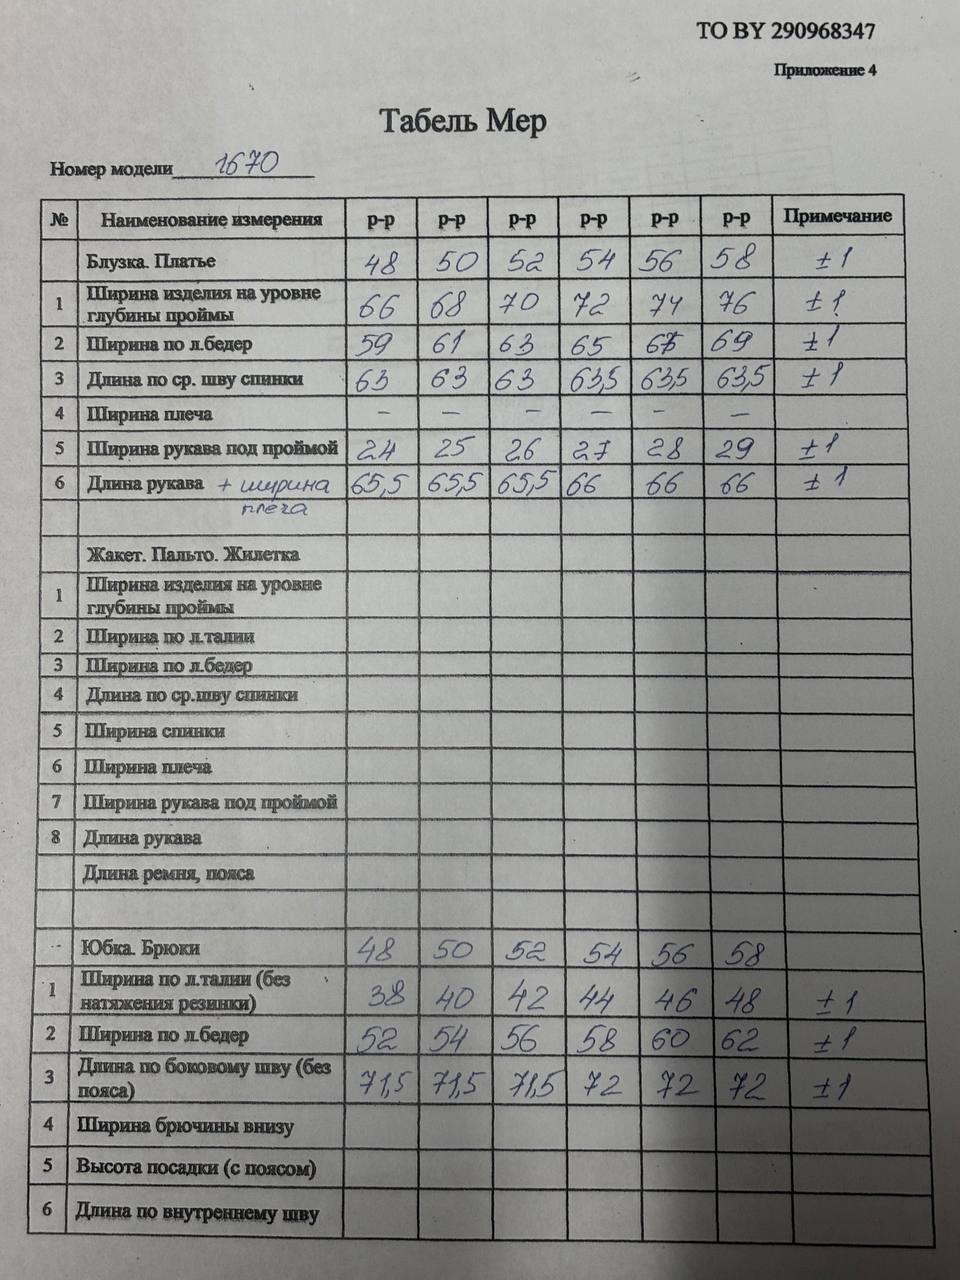 ТО BY 290968347
Приложение 4
Табель Мер
Номер модели 1670
№ Наименование измерения р-р р-р р-р р-р р-р р-р Примечание
Блузка. Платье 48 50 52 54 56 58 ±1
1 Ширина изделия на уровне глубины проймы 66 68 70 72 74 76 ±1
2 Ширина по л.бедер 59 61 63 65 67 69 ±1
3 Длина по ср. шву спинки 63 63 63 63,5 63,5 63,5 ±1
4 Ширина плеча – – – – – –
5 Ширина рукава под проймой 24 25 26 27 28 29 ±1
6 Длина рукава + ширина плеча 65,5 65,5 65,5 66 66 66 ±1
Жакет. Пальто. Жилетка
1 Ширина изделия на уровне глубины проймы
2 Ширина по л.талии
3 Ширина по л.бедер
4 Длина по ср.шву спинки
5 Ширина спинки
6 Ширина плеча
7 Ширина рукава под проймой
8 Длина рукава
Длина ремня, пояса
Юбка. Брюки 48 50 52 54 56 58
1 Ширина по л.талии (без натяжения резинки) 38 40 42 44 46 48 ±1
2 Ширина по л.бедер 52 54 56 58 60 62 ±1
3 Длина по боковому шву (без пояса) 71,5 71,5 71,5 72 72 72 ±1
4 Ширина брючины внизу
5 Высота посадки (с поясом)
6 Длина по внутреннему шву